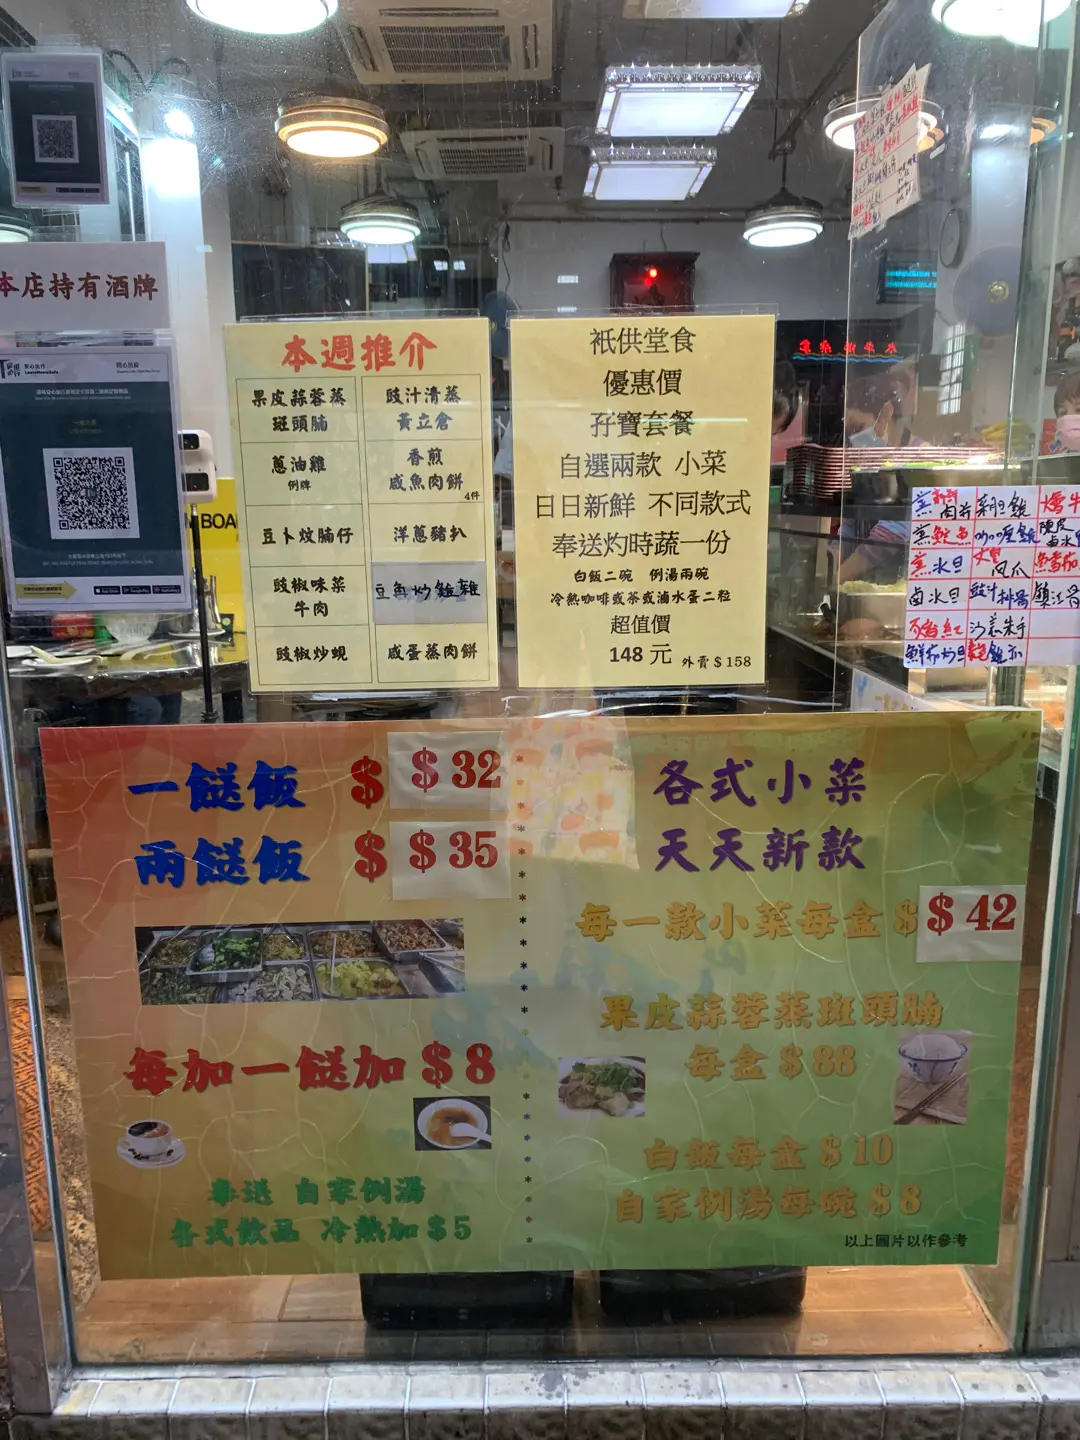 本店持有酒牌
安心出行
LeaveHomeSafe
同心抗疫
本週推介
果皮蒜蓉蒸
斑頭腩
豉汁清蒸
黃立倉
蔥油雞
例牌
香煎
咸魚肉餅
4件
豆卜炆腩仔
洋蔥豬扒
豉椒味菜
牛肉
豉椒炒蜆
咸蛋蒸肉餅
祇供堂食
優惠價
孖寶套餐
自選兩款 小菜
日日新鮮 不同款式
奉送灼時蔬一份
白飯二碗 例湯兩碗
冷熱咖啡或茶或滷水蛋二粒
超值價
148 元 外賣 $ 158
一餸飯 $ $ 32
兩餸飯 $ $ 35
每加一餸加 $ 8
奉送 自家例湯
各式飲品 冷熱加 $ 5
各式小菜
天天新款
每一款小菜每盒 $ $ 42
果皮蒜蓉蒸斑頭腩
每盒 $ 88
白飯每盒 $ 10
自家例湯每碗 $ 8
以上圖片以作參考